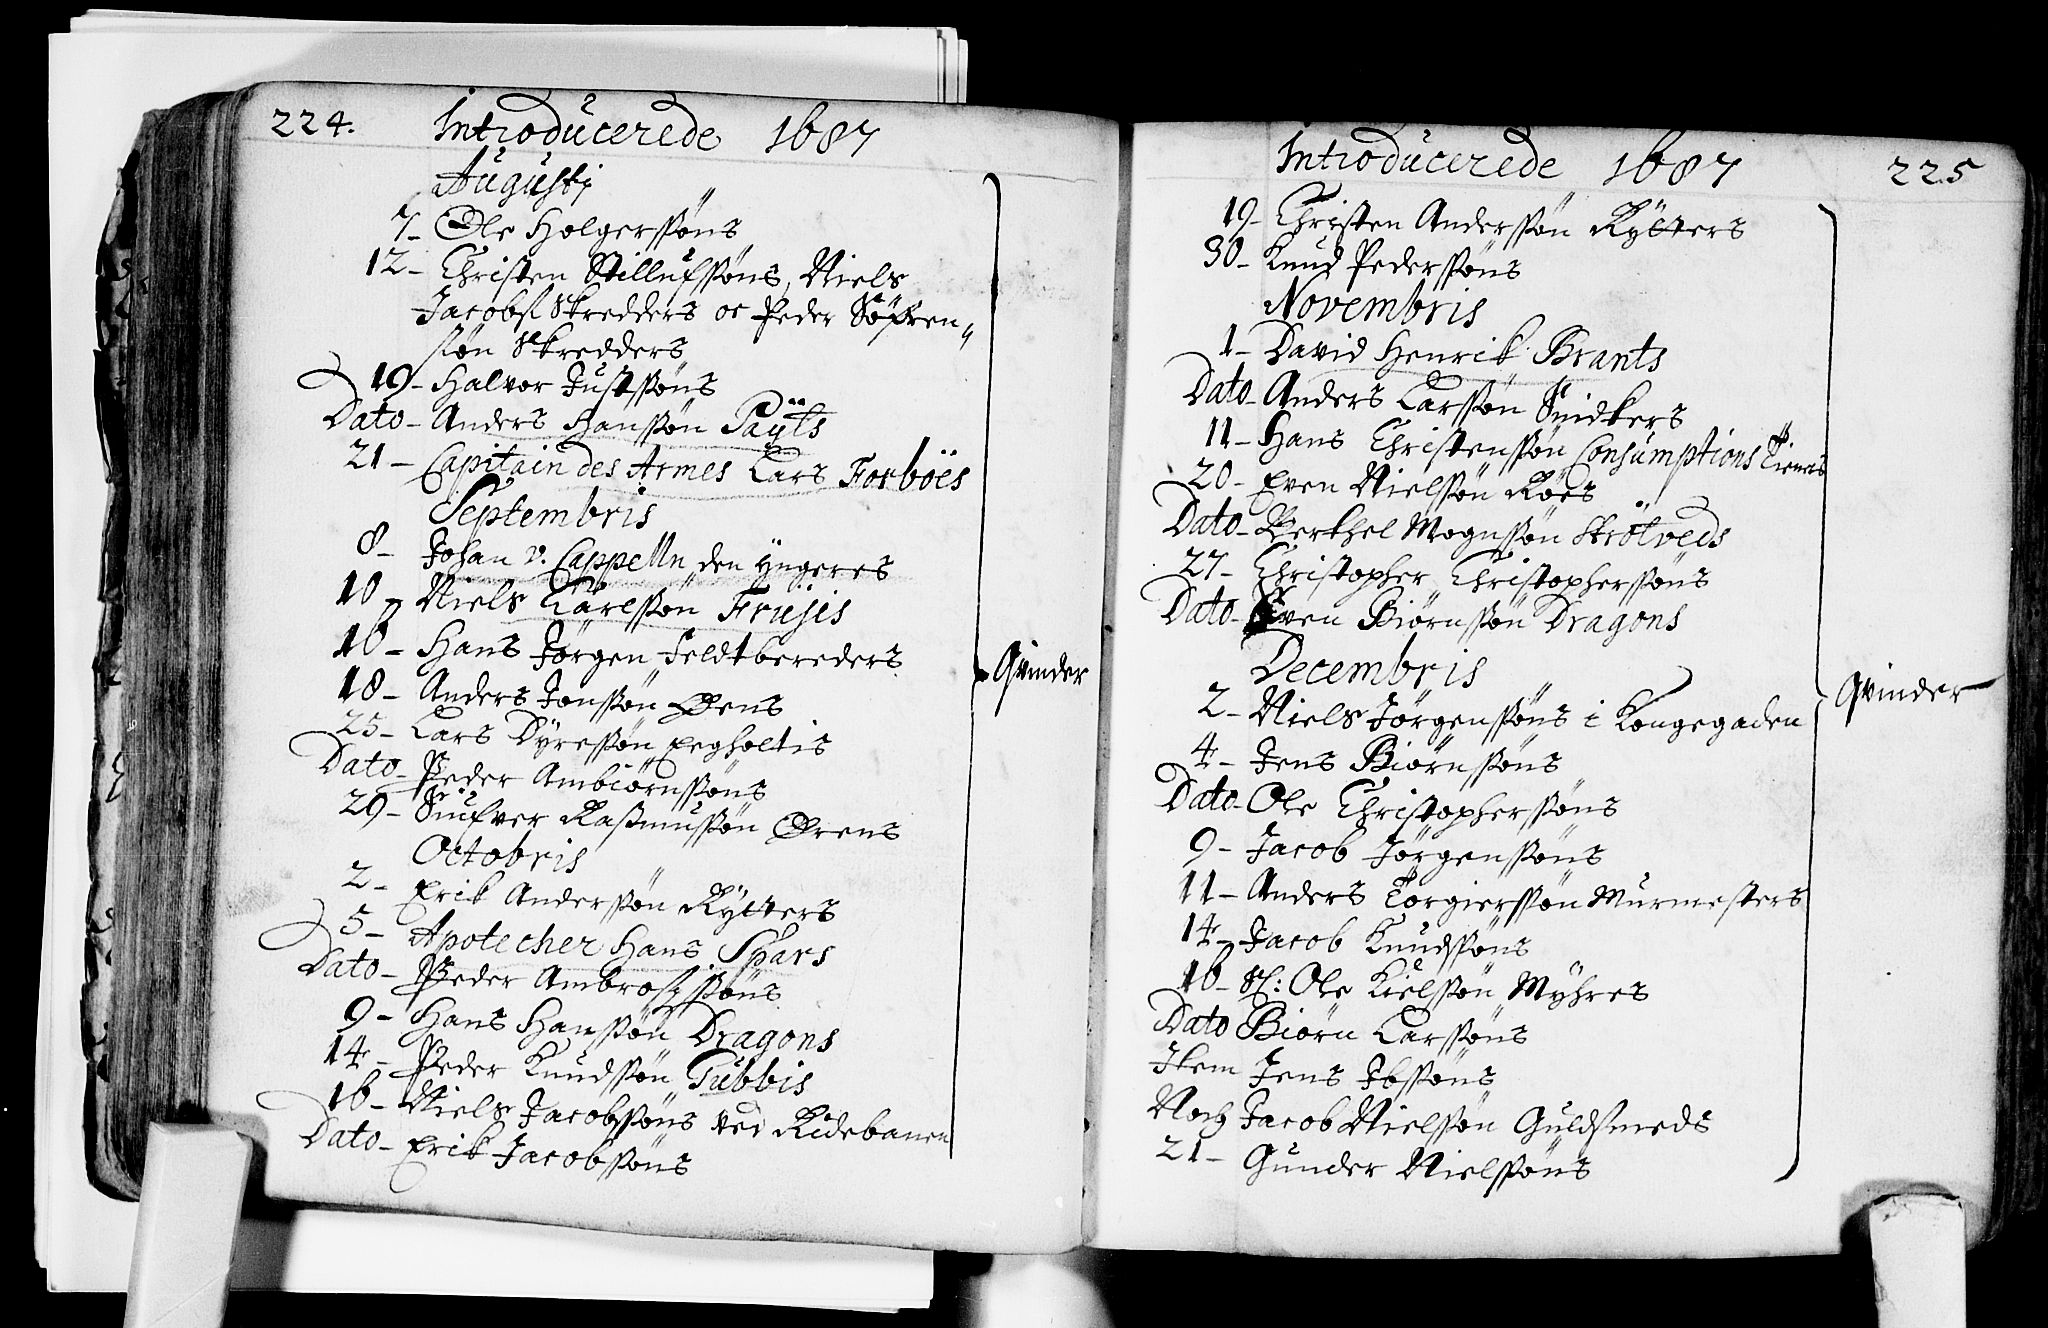 224. Introducerede 1687
Augustj
7- Ole Holgerssøns
12- Christen Stillufssøns, Niels
Jacobss Skredders oc Peder Søfren-
søn Skredders
19- Halvor Justssøns
Dato- Anders Hanssøn Päÿts
21- Capitain des Armes Lars Forböes
Septembris
8- Johan v. Cappelln den Yngeres
10- Niels Carlssøn Frusis
16- Hans Jørgen Feldtbereders
18- Anders Jonssøn Øens
25- Lars Dyressøn Eegholtis
Dato- Peder Ambiørnssøns
29- Siufver Rasmussøn Ørens
Octobris
2- Erik Anderssøn Rytters
5- Apotecher Hans Spars
Dato- Peder Ambrosjssøns
9- Hans Hanssøn Dragons
14- Peder Knudssøn Tubbis
16- Niels Jacobssøns ved Ridebanen
Dato- Erik Jacobssøns
Qvinder
Introducerede 1687 225
19- Christen Anderssøn Rytters
30- Knud Pederssøns
Novembris
1- David Henrik Brants
Dato- Anders Larssøn Snidkers
11- Hans Christenssøn Consumptions
20- Even Nielssøn Røes
Dato- Berthel Mognssøn Skrötveds
27- Christopher Christopherssøns
Dato- Even Biørnssøn Dragons
Decembris
2- Niels Jørgenssøns i Kongegaden
4- Jens Biørnssøns
Dato- Ole Christopherssøns
9- Jacob Jørgenssøns
11- Anders Torgierssøn Murmesters
14- Jacob Knudssøns
16- Sl: Ole Kielssøn Myhres
Dato Biørn Larssøns
Item Jens Ibssøns
Noch Jacob Nielssøn Guldsmeds
21- Gunder Nielssøns
Qvinder